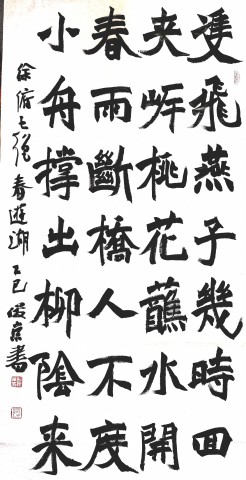 雙飛燕子幾時回
夾岸桃花蘸水開
春雨斷橋人不度
小舟撑出柳陰来
徐俯七絕 春遊湖 乙巳 書